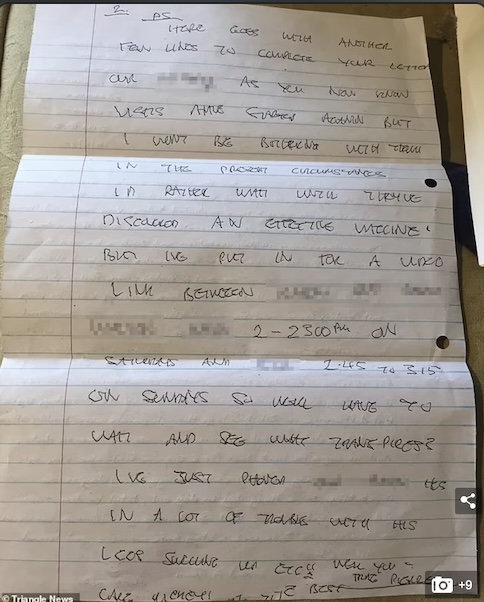 2. PS
HERE GOES WITH ANOTHER
FEW LINES TO COMPLETE YOUR LETTER
OUR AS YOU NOW KNOW
VISITS HAVE STARTED AGAIN BUT
I WONT BE BOTHERING WITH THEM
IN THE PRESENT CIRCUMSTANCES
ID RATHER WAIT UNTIL THEYVE
DISCOVERED AN EFFECTIVE VACCINE.
BUT IVE PUT IN FOR A VIDEO
LINK BETWEEN
2-2300PM ON
SATURDAYS AND 2.45 TO 315
ON SUNDAYS SO WELL HAVE TO
WAIT AND SEE WHAT TRANSPIRES?
IVE JUST PHONED HES
IN A LOT OF TROUBLE WITH HIS
LEGS SWELLING UP ETC!! WELL YOU-
THE BEST
© Triangle News
+9